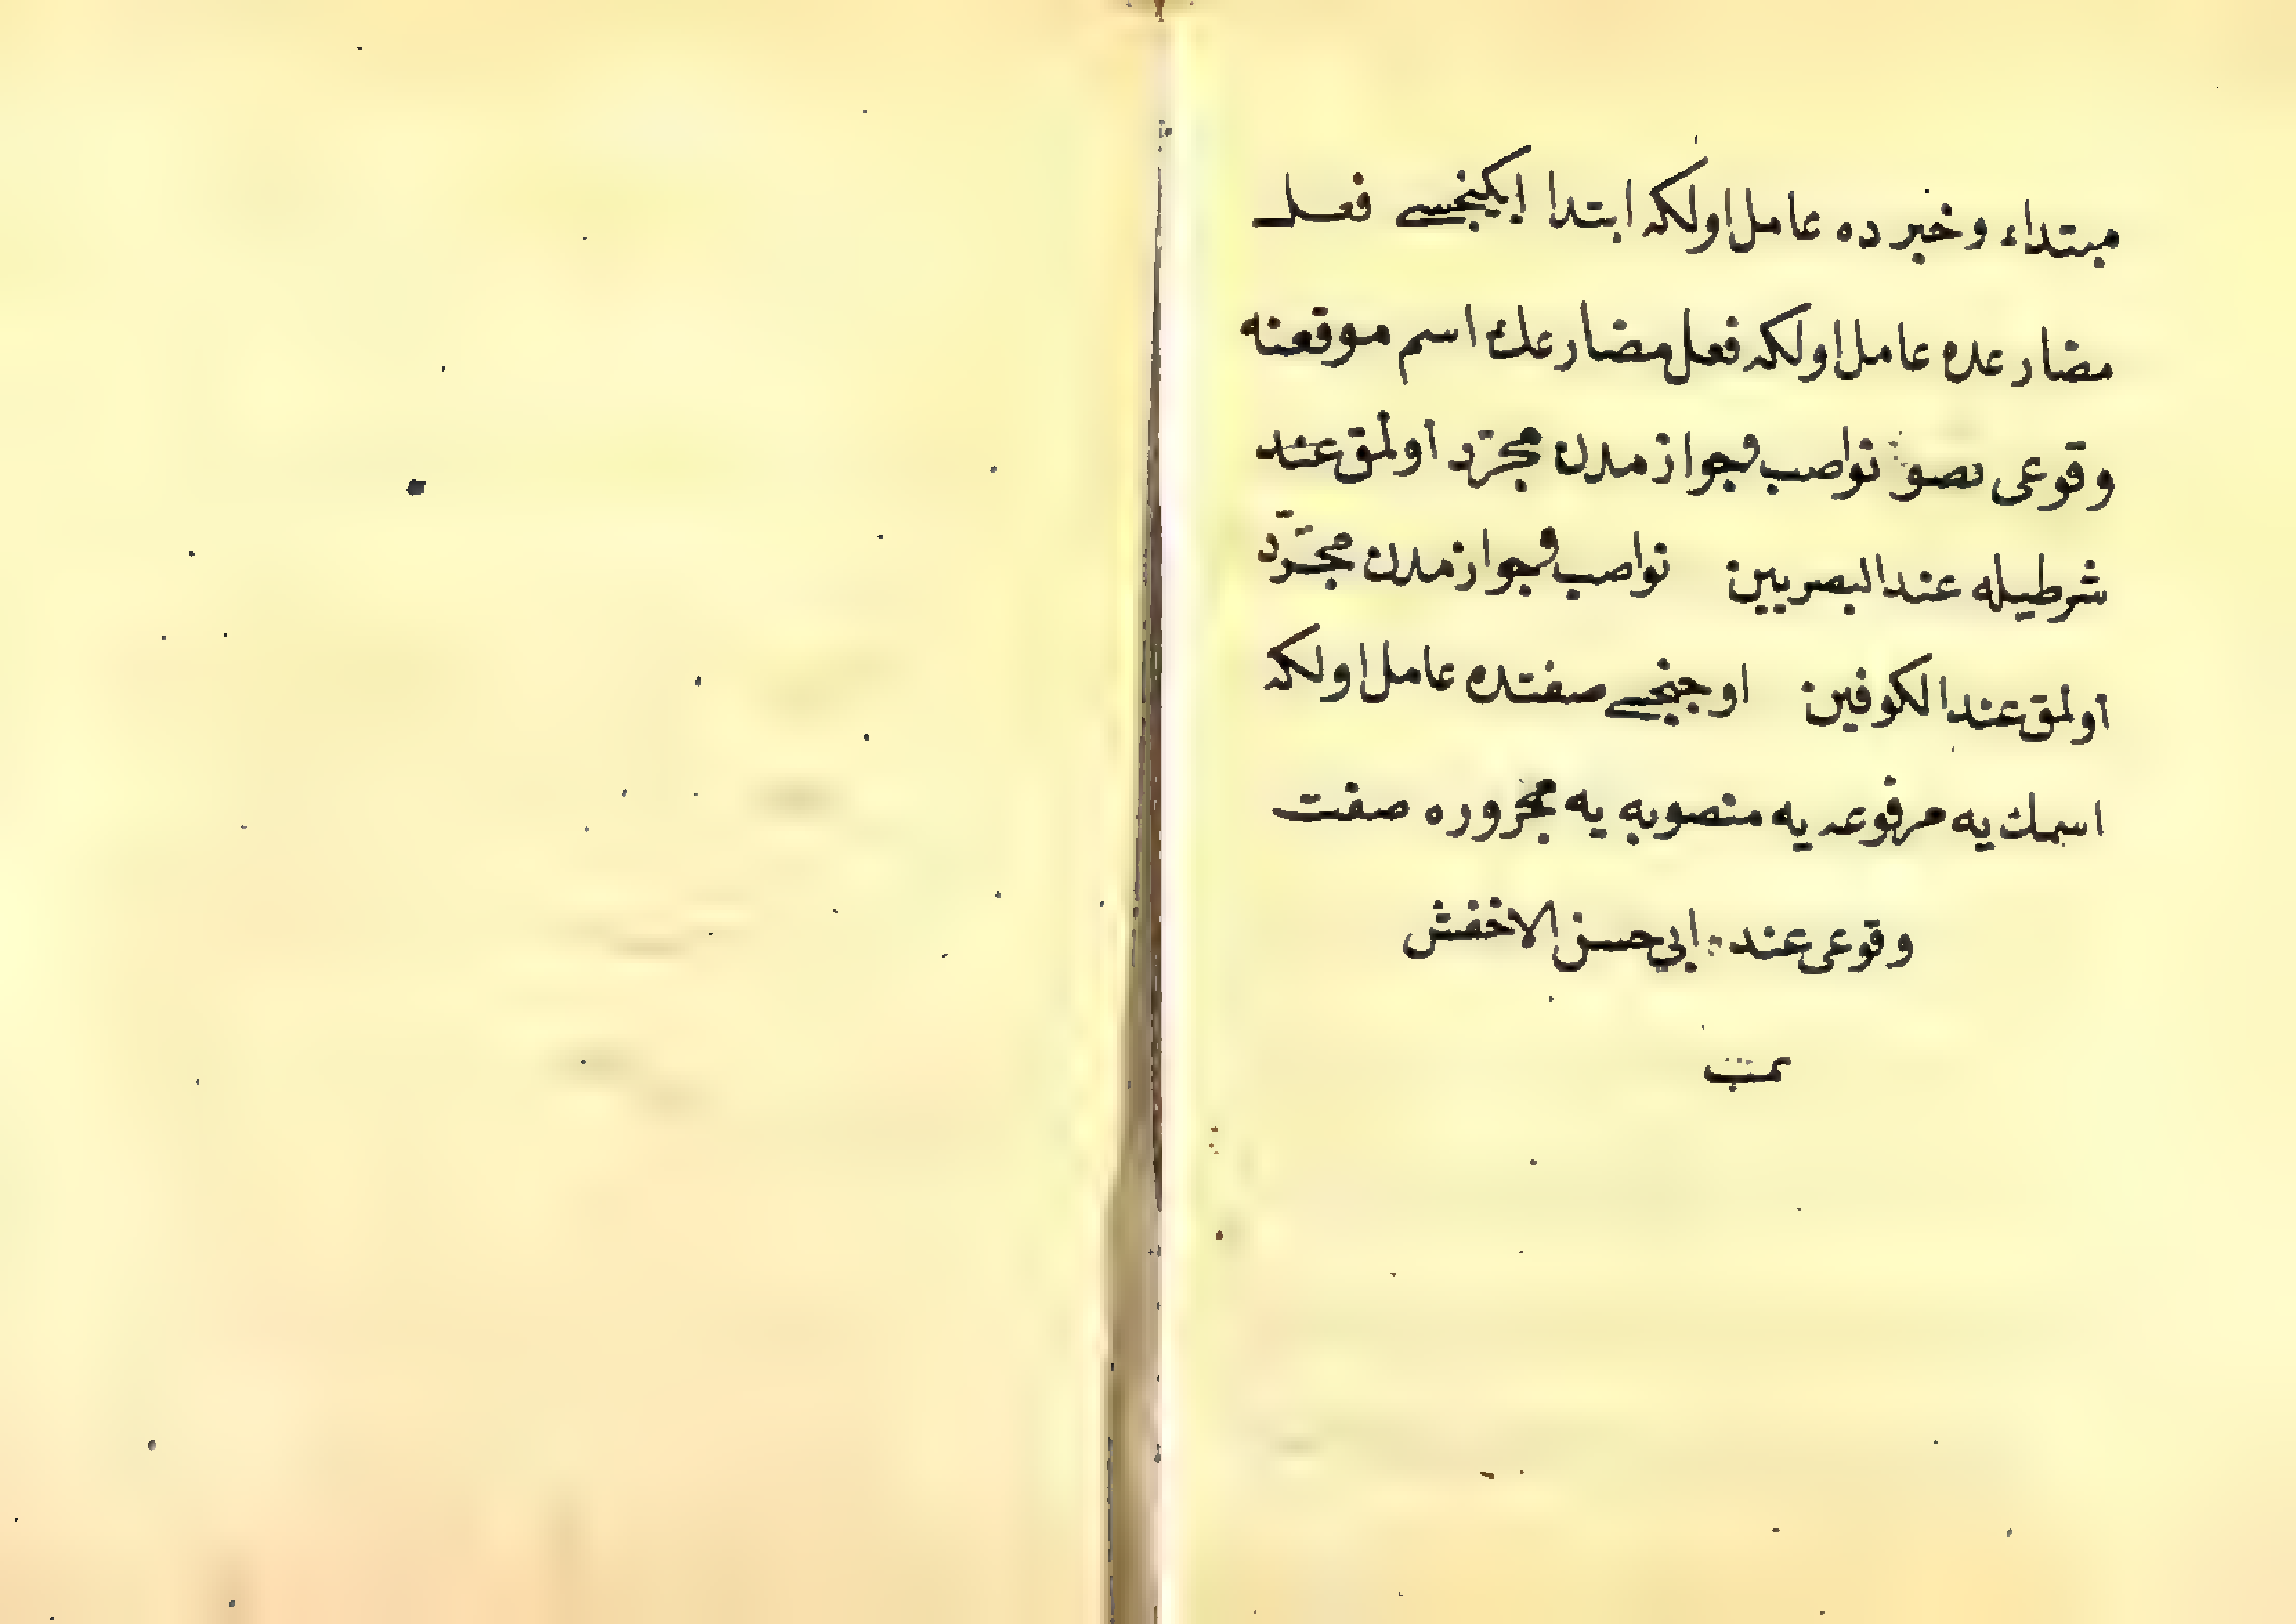 مبتداء و خبرده عامل اولكه ابتدا ايكينجسے فعل
مضارعده عامل اولكه فعل مضارعك اسم موقعنه
وقوعى نواصب وجوازمدن مجرّد اولمق عند
شرطيله عند البصريين نواصب وجوازمدن مجرّد
اولمق عند الكوفين اوجنجسے صفتده عامل اولكه
اسمك يه مرفوعه يه منصوبه يه مجروره صفت
وقوعى عند ابي حسن الاخفش
تمت